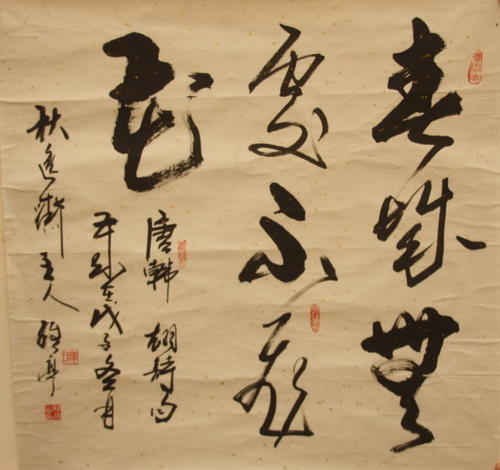 春城無
處不飛
花
唐韓翃詩句
歲在戊子冬月
秋逸齋主人